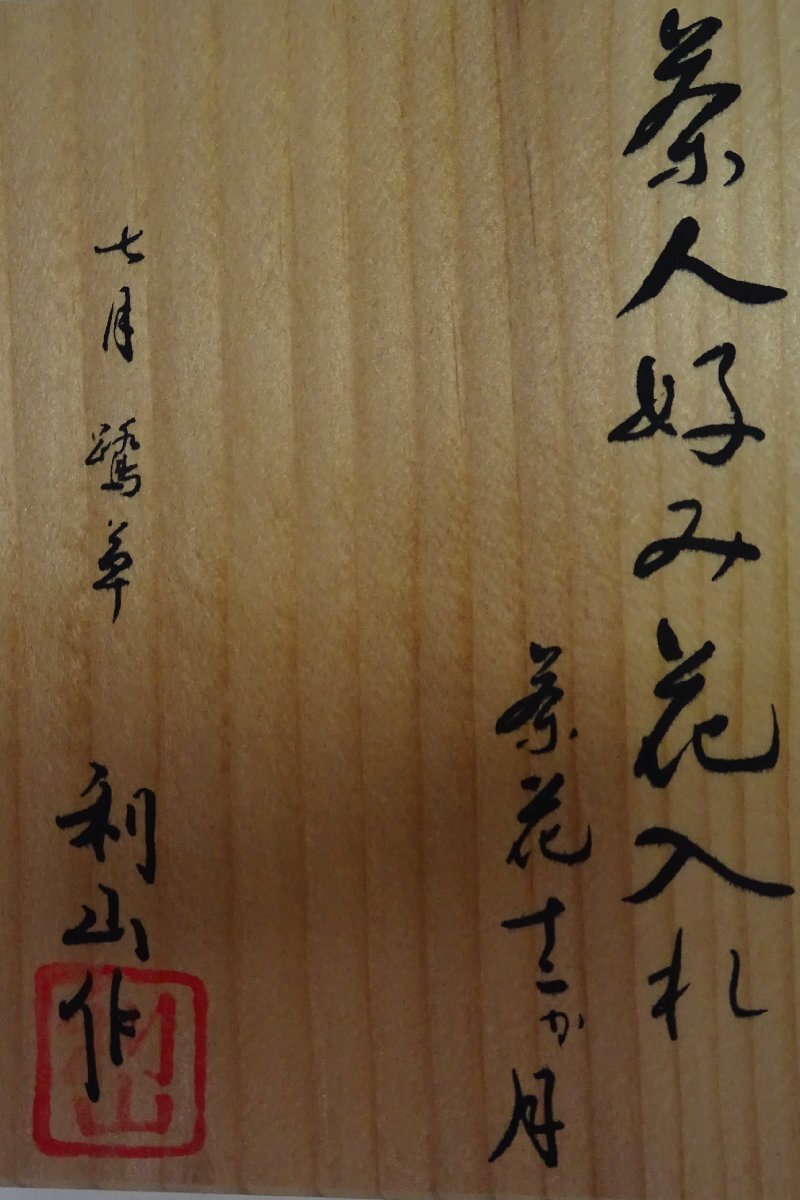 茶人好み花入札
茶花十二か月
七月 鷺草
利山作
利山